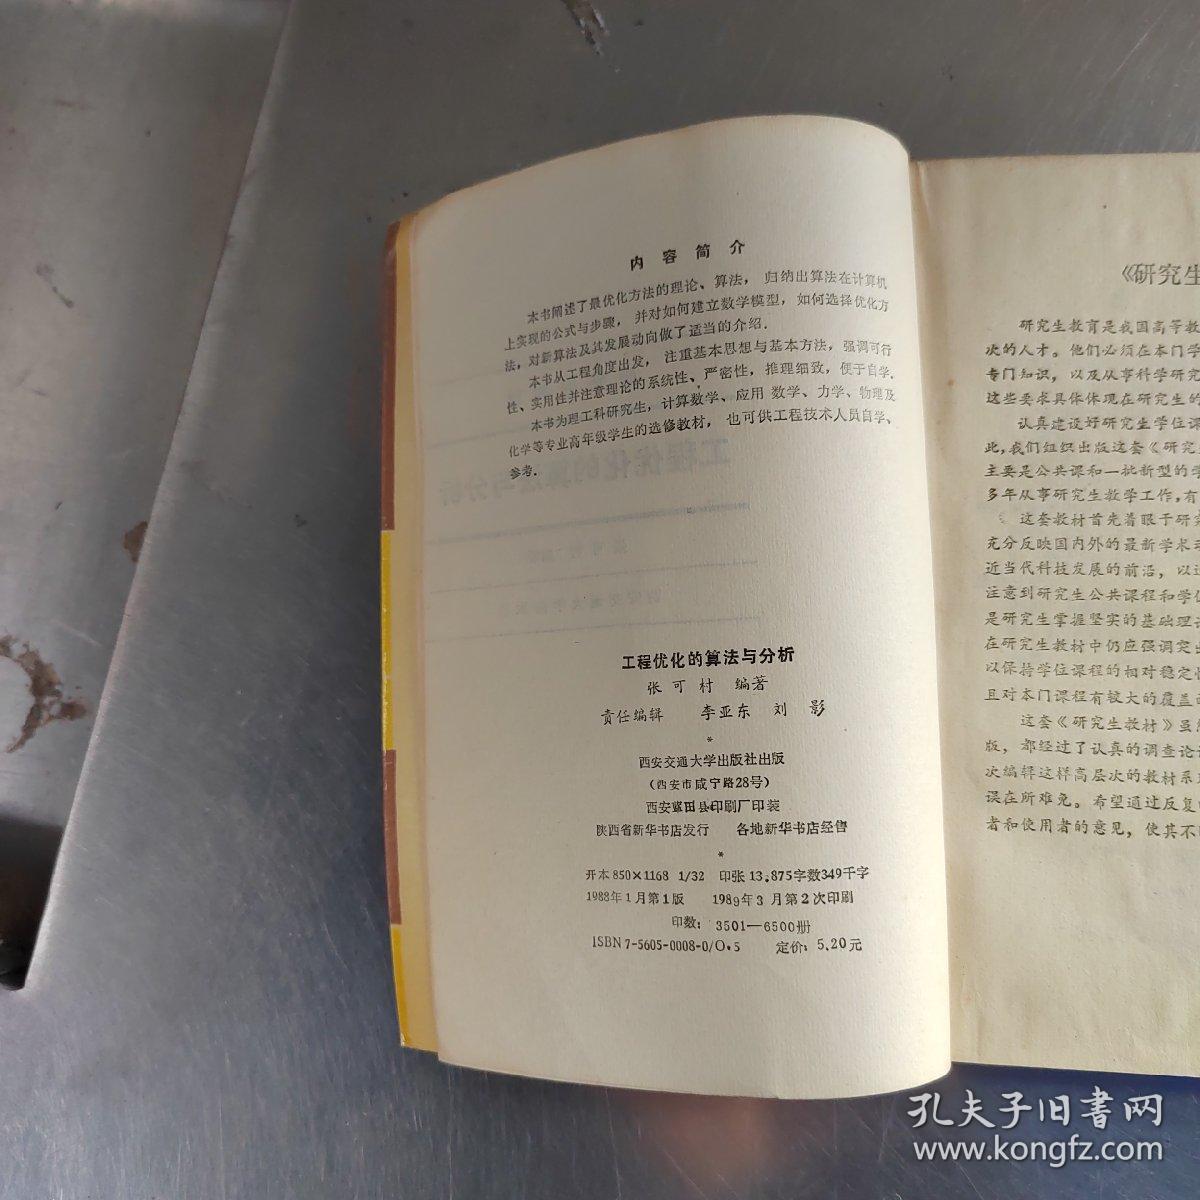 内容简介
本书阐述了最优化方法的理论、算法，归纳出算法在计算机
上实现的公式与步骤，并对如何建立数学模型，如何选择优化方
法，对新算法及其发展动向做了适当的介绍．
本书从工程角度出发，注重基本思想与基本方法，强调可行
性、实用性并注意理论的系统性、严密性，推理细致，便于自学．
本书为理工科研究生，计算数学、应用数学、力学、物理及
化学等专业高年级学生的选修教材，也可供工程技术人员自学、
参考．
工程优化的算法与分析
张可村 编著
责任编辑 李亚东 刘影
*
西安交通大学出版社出版
（西安市咸宁路28号）
西安蓝田县印刷厂印装
陕西省新华书店发行 各地新华书店经售
*
开本 850×1168 1/32 印张 13.875字数349千字
1988年1月第1版 1989年3月第2次印刷
印数：3501—6500册
ISBN 7-5605-0008-0/O·5 定价：5.20元
《研究生
研究生教育是我国高等教
次的人才。他们必须在本门学
专门知识，以及从事科学研究
这些要求具体体现在研究生的
认真建设好研究生学位课
此，我们组织出版这套《研究
主要是公共课和一批新型的学
多年从事研究生教学工作，有
这套教材首先着眼于研究
充分反映国内外的最新学术
近当代科技发展的前沿，以
注意到研究生公共课程和学
是研究生掌握坚实的基础理
在研究生教材中仍应强调突出
以保持学位课程的相对稳定
且对本门课程有较大的覆盖
这套《研究生教材》虽
版，都经过了认真的调查论
次编辑这样高层次的教材系
误在所难免。希望通过反复
者和使用者的意见，使其不
孔夫子旧书网
www.kongfz.com